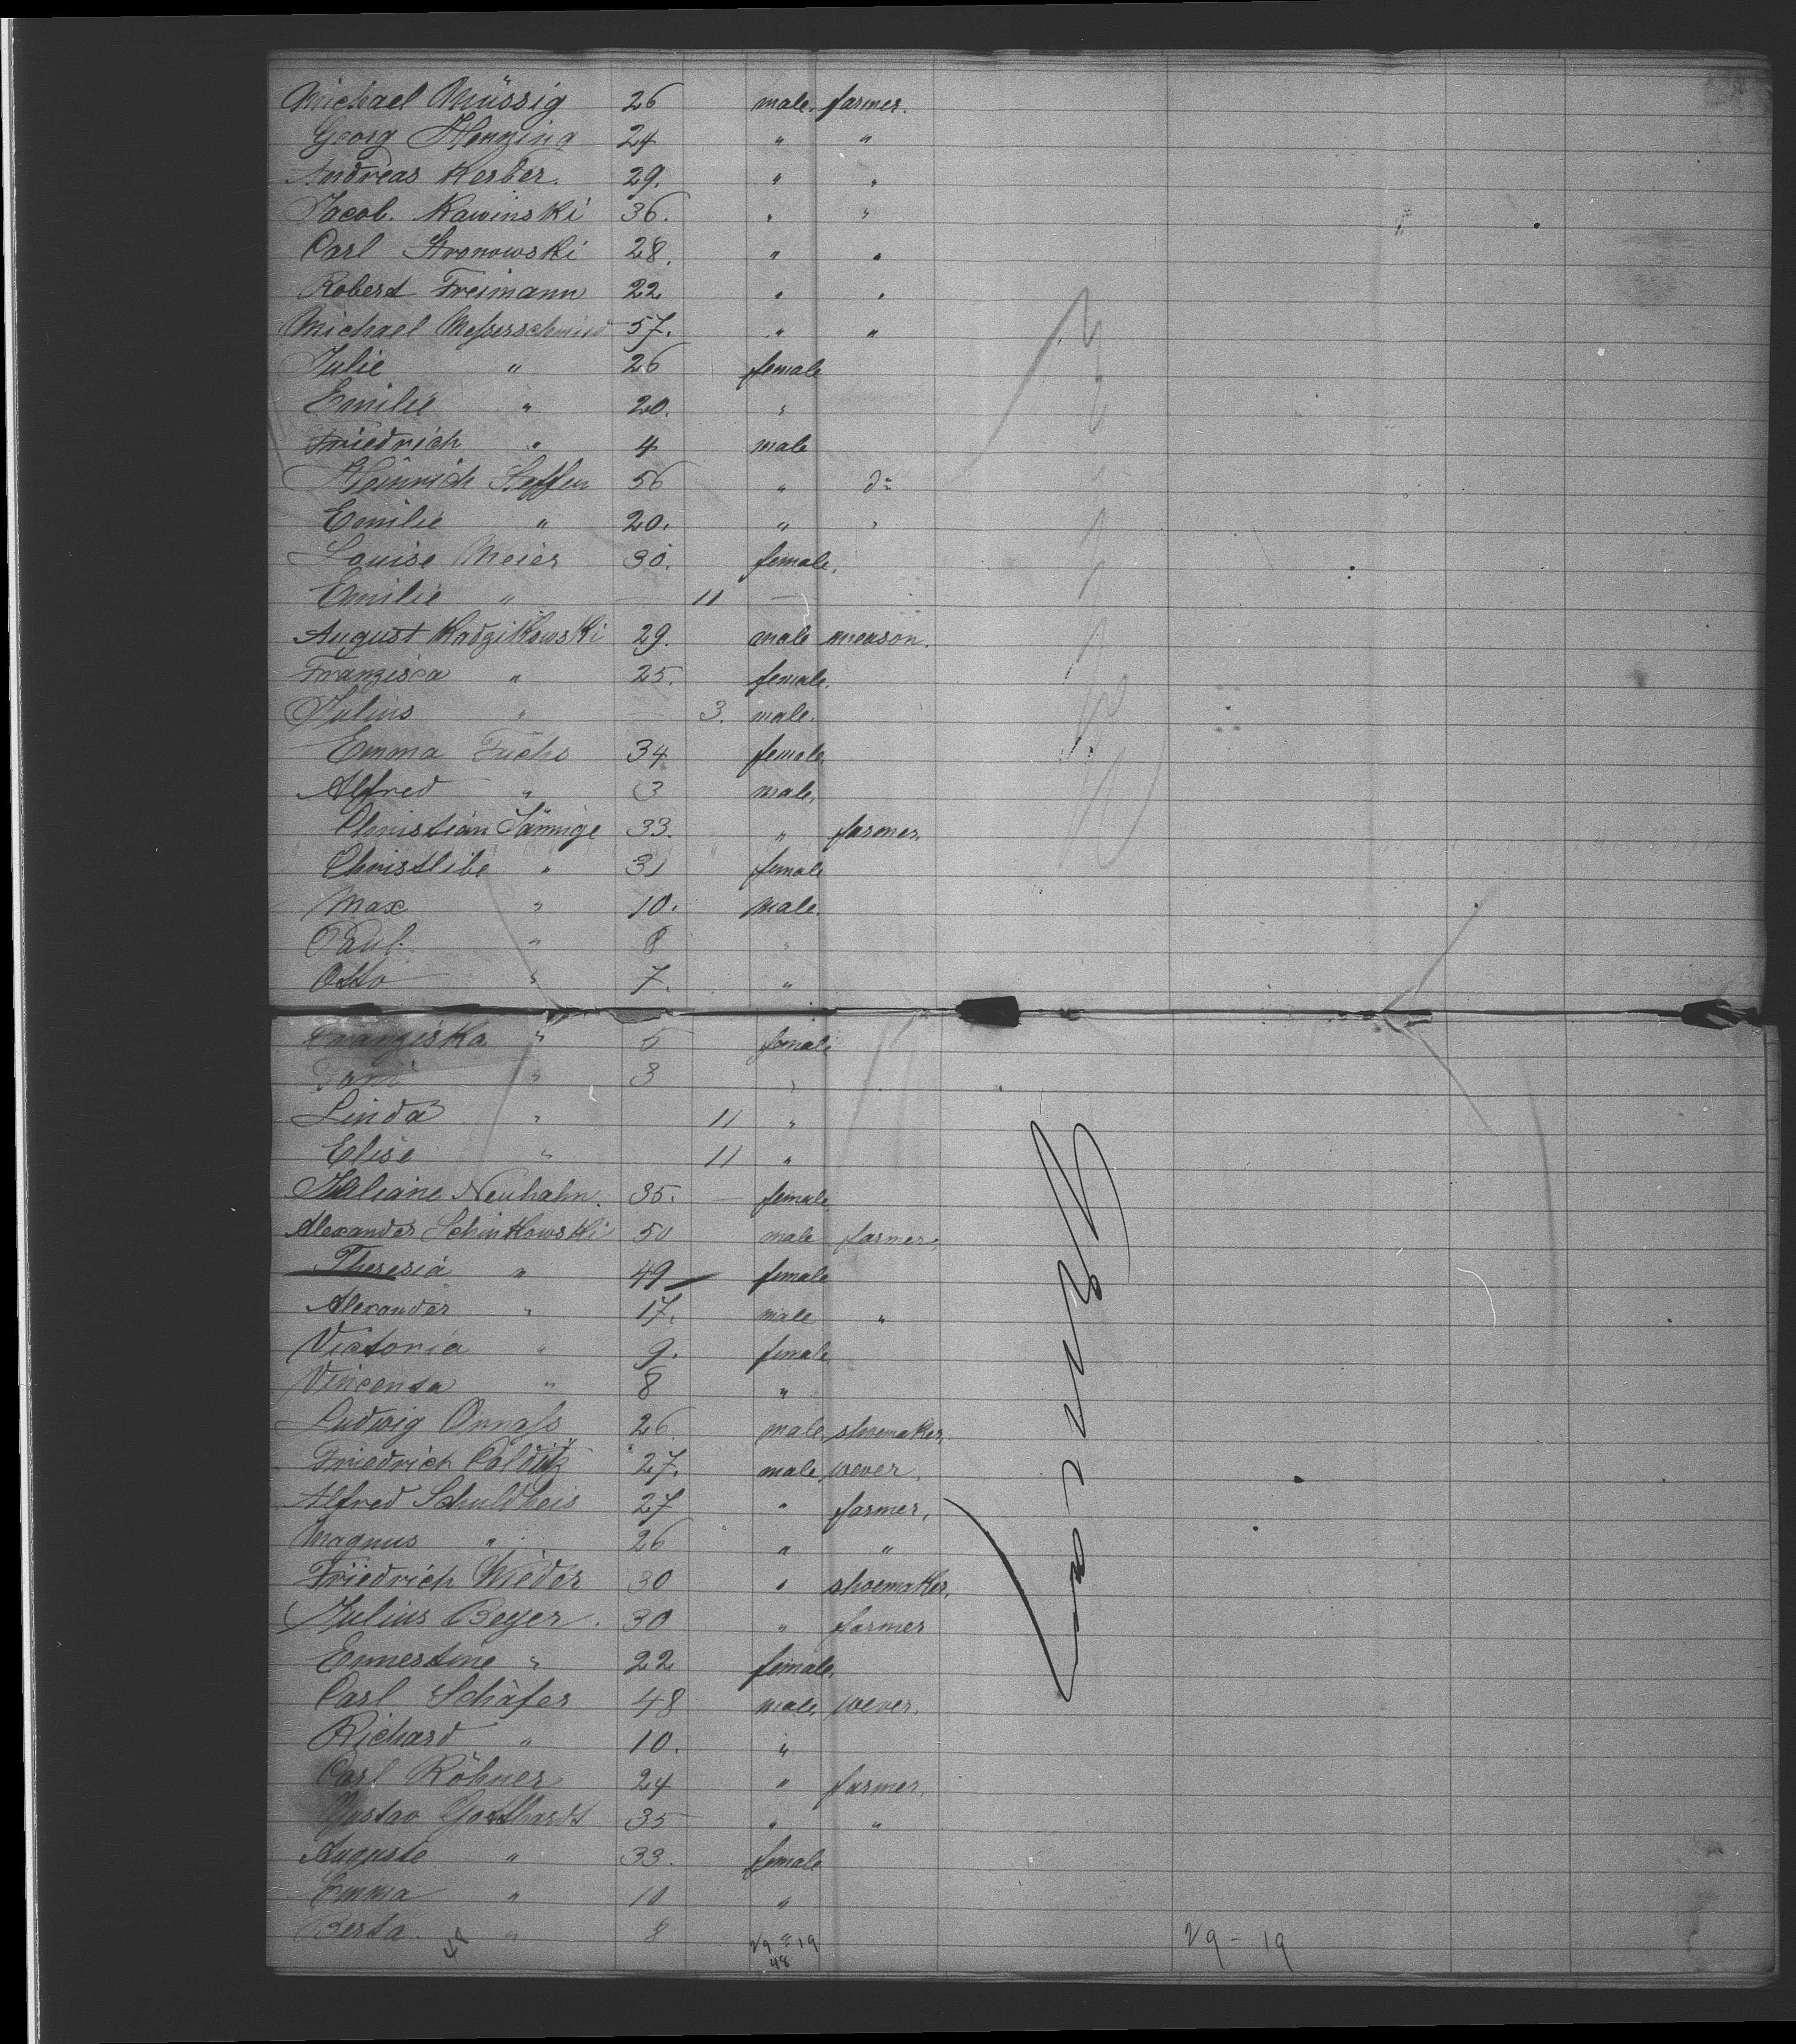 Michael Müssig 26 male. farmer.
Georg Henning 24 " "
Andreas Kerber. 29. " "
Jacob. Kawinski 36. " "
Carl Stronowski 28. " "
Robert Freimann 22 " "
Michael Meßerschmied 57. " "
Julie " 26 female
Emilie " 20. "
Friedrich " 4 male
Heinrich Steffen 56 " do
Emilie " 20. " "
Louise Meier 30. female.
Emilie " — 11 —
August Kadzikowski 29. male meason.
Franzisca " 25. female.
Julius " — 3. male.
Emma Fuchs 34 female.
Alfred " 3 male.
Christian 33. " farmer.
Christlibe " 31 female
Max " 10. male.
Paul. " 8 "
Otto " 7. "
Franziska " 5 female
" 3 "
Linda " 11 "
Elise " 11 "
Juliane Neuhahn. 35. — female.
Alexander Schinkowski 50 male farmer.
Theresia " 49 female
Alexander " 17. male "
Victoria " 9. female
Vincenta " 8 "
Ludwig Onnaß 26. male shoemaker.
Friedrich Colditz 27. male wever.
Alfred Schuldheis 27 " farmer.
Magnus " 26 " "
Friedrich Wieder 30 " shoemaker.
Julius Beyer. 30 " farmer
Ernestine " 22 female.
Carl Schäfer 48 male. wever.
Richard " 10. "
Carl Röhner 24 " farmer.
Gustav Gotthardt 35 " "
Auguste " 33. female
Emma " 10 "
Berta. " 8 "
48 29 - 19 29 - 19
48